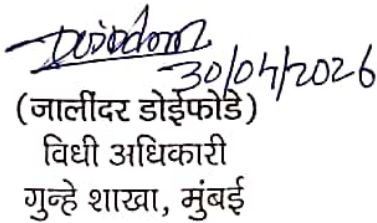 30/04/2026
(जालींदर डोईफोडे)
विधी अधिकारी
गुन्हे शाखा, मुंबई